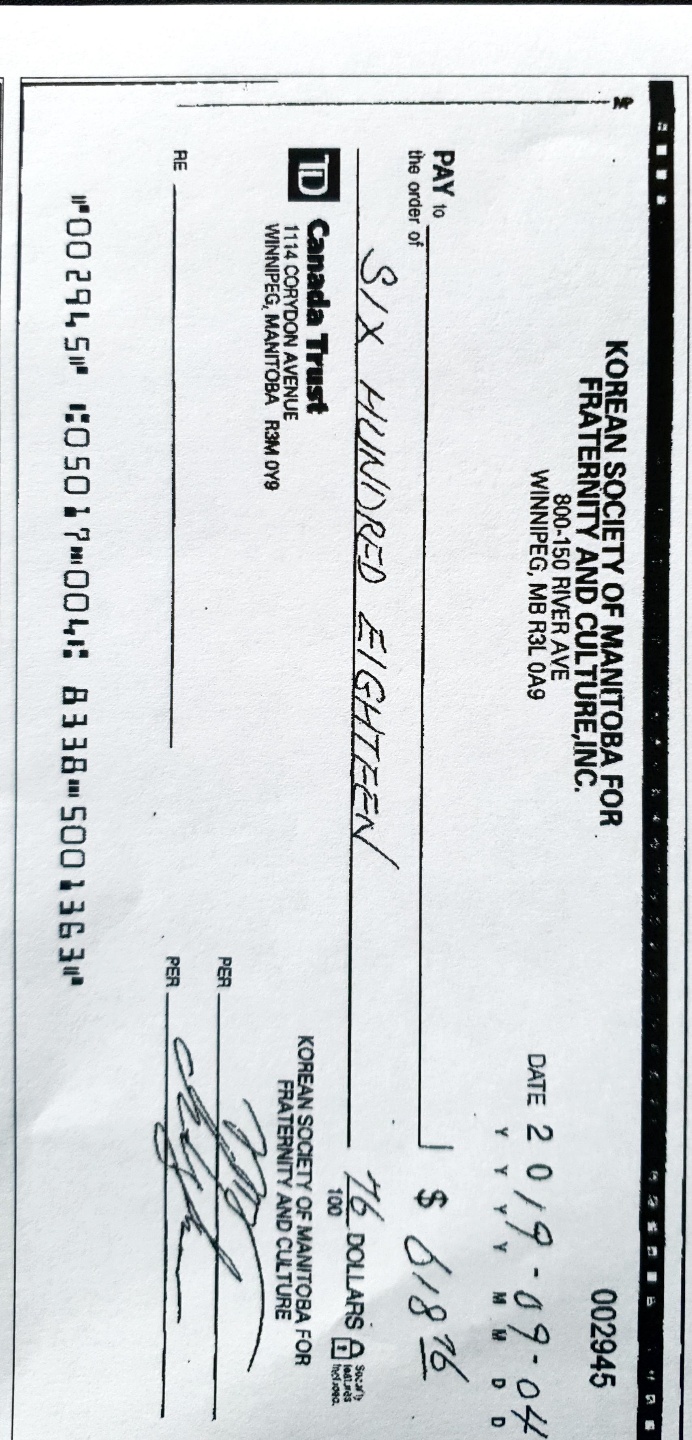 KOREAN SOCIETY OF MANITOBA FOR
FRATERNITY AND CULTURE, INC.
800-150 RIVER AVE
WINNIPEG, MB R3L 0A9
002945
DATE 2019-09-04
Y Y Y Y M M D D
PAY to
the order of
$ 618 76
SIX HUNDRED EIGHTEEN
76
100 DOLLARS
Security
features
included.
TD Canada Trust
1114 CORYDON AVENUE
WINNIPEG, MANITOBA R3M 0Y9
KOREAN SOCIETY OF MANITOBA FOR
FRATERNITY AND CULTURE
PER
PER
RE
⑈002945⑈ ⑆05017⑉004⑆ 8338⑉5001363⑈